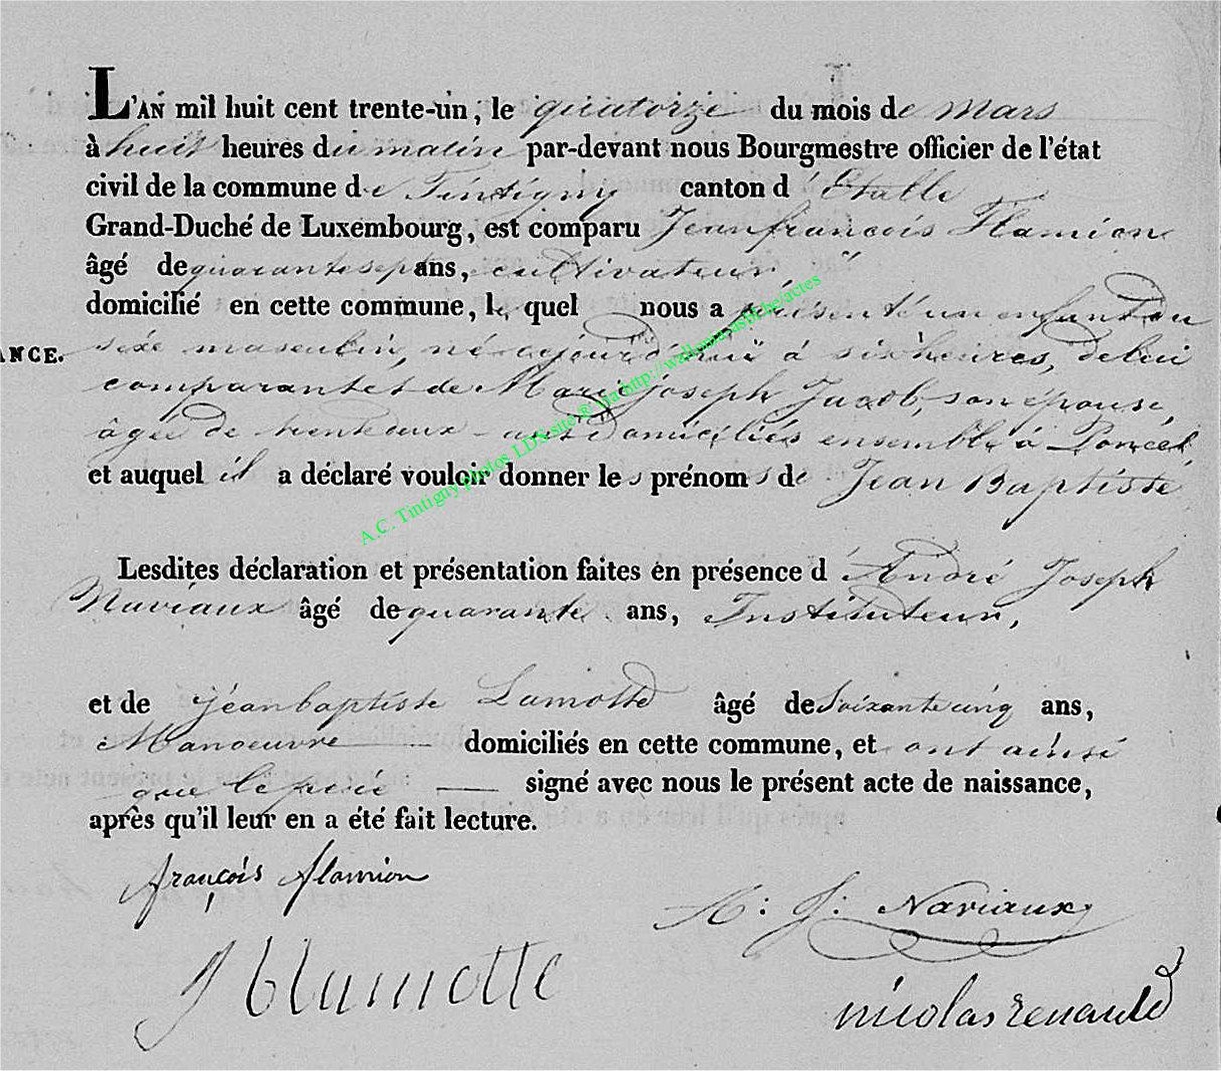 L'AN mil huit cent trente-un, le quatorze du mois de Mars
à huit heures du matin par-devant nous Bourgmestre officier de l'état
civil de la commune de Tintigny canton d'Etalle
Grand-Duché de Luxembourg, est comparu Jeanfrançois Flamion
âgé de quarantesept ans, cultivateur, "
domicilié en cette commune, le quel nous a présenté un enfant du
ANCE. sexe masculin, né aujourd'huï à six heures, de lui
comparant et de Marie joseph Jacob, son epouse,
âgée de trente deux ans Domiciliés ensemble à Poncel,
et auquel il a déclaré vouloir donner les prénoms de Jean Baptiste
Lesdites déclaration et présentation faites en présence d'André Joseph
Naviaux âgé de quarante ans, Instituteur,
et de jéanbaptiste Lamotte âgé de Soixante cinq ans,
Manoeuvre domiciliés en cette commune, et ont ainsi
que le père signé avec nous le présent acte de naissance,
après qu'il leur en a été fait lecture.
françois flamion
A: J: Naviaux
J b lamotte
nicolas renauld
A.C. Tintigny photos LDS site & via http://wallonia.asbl.be/actes